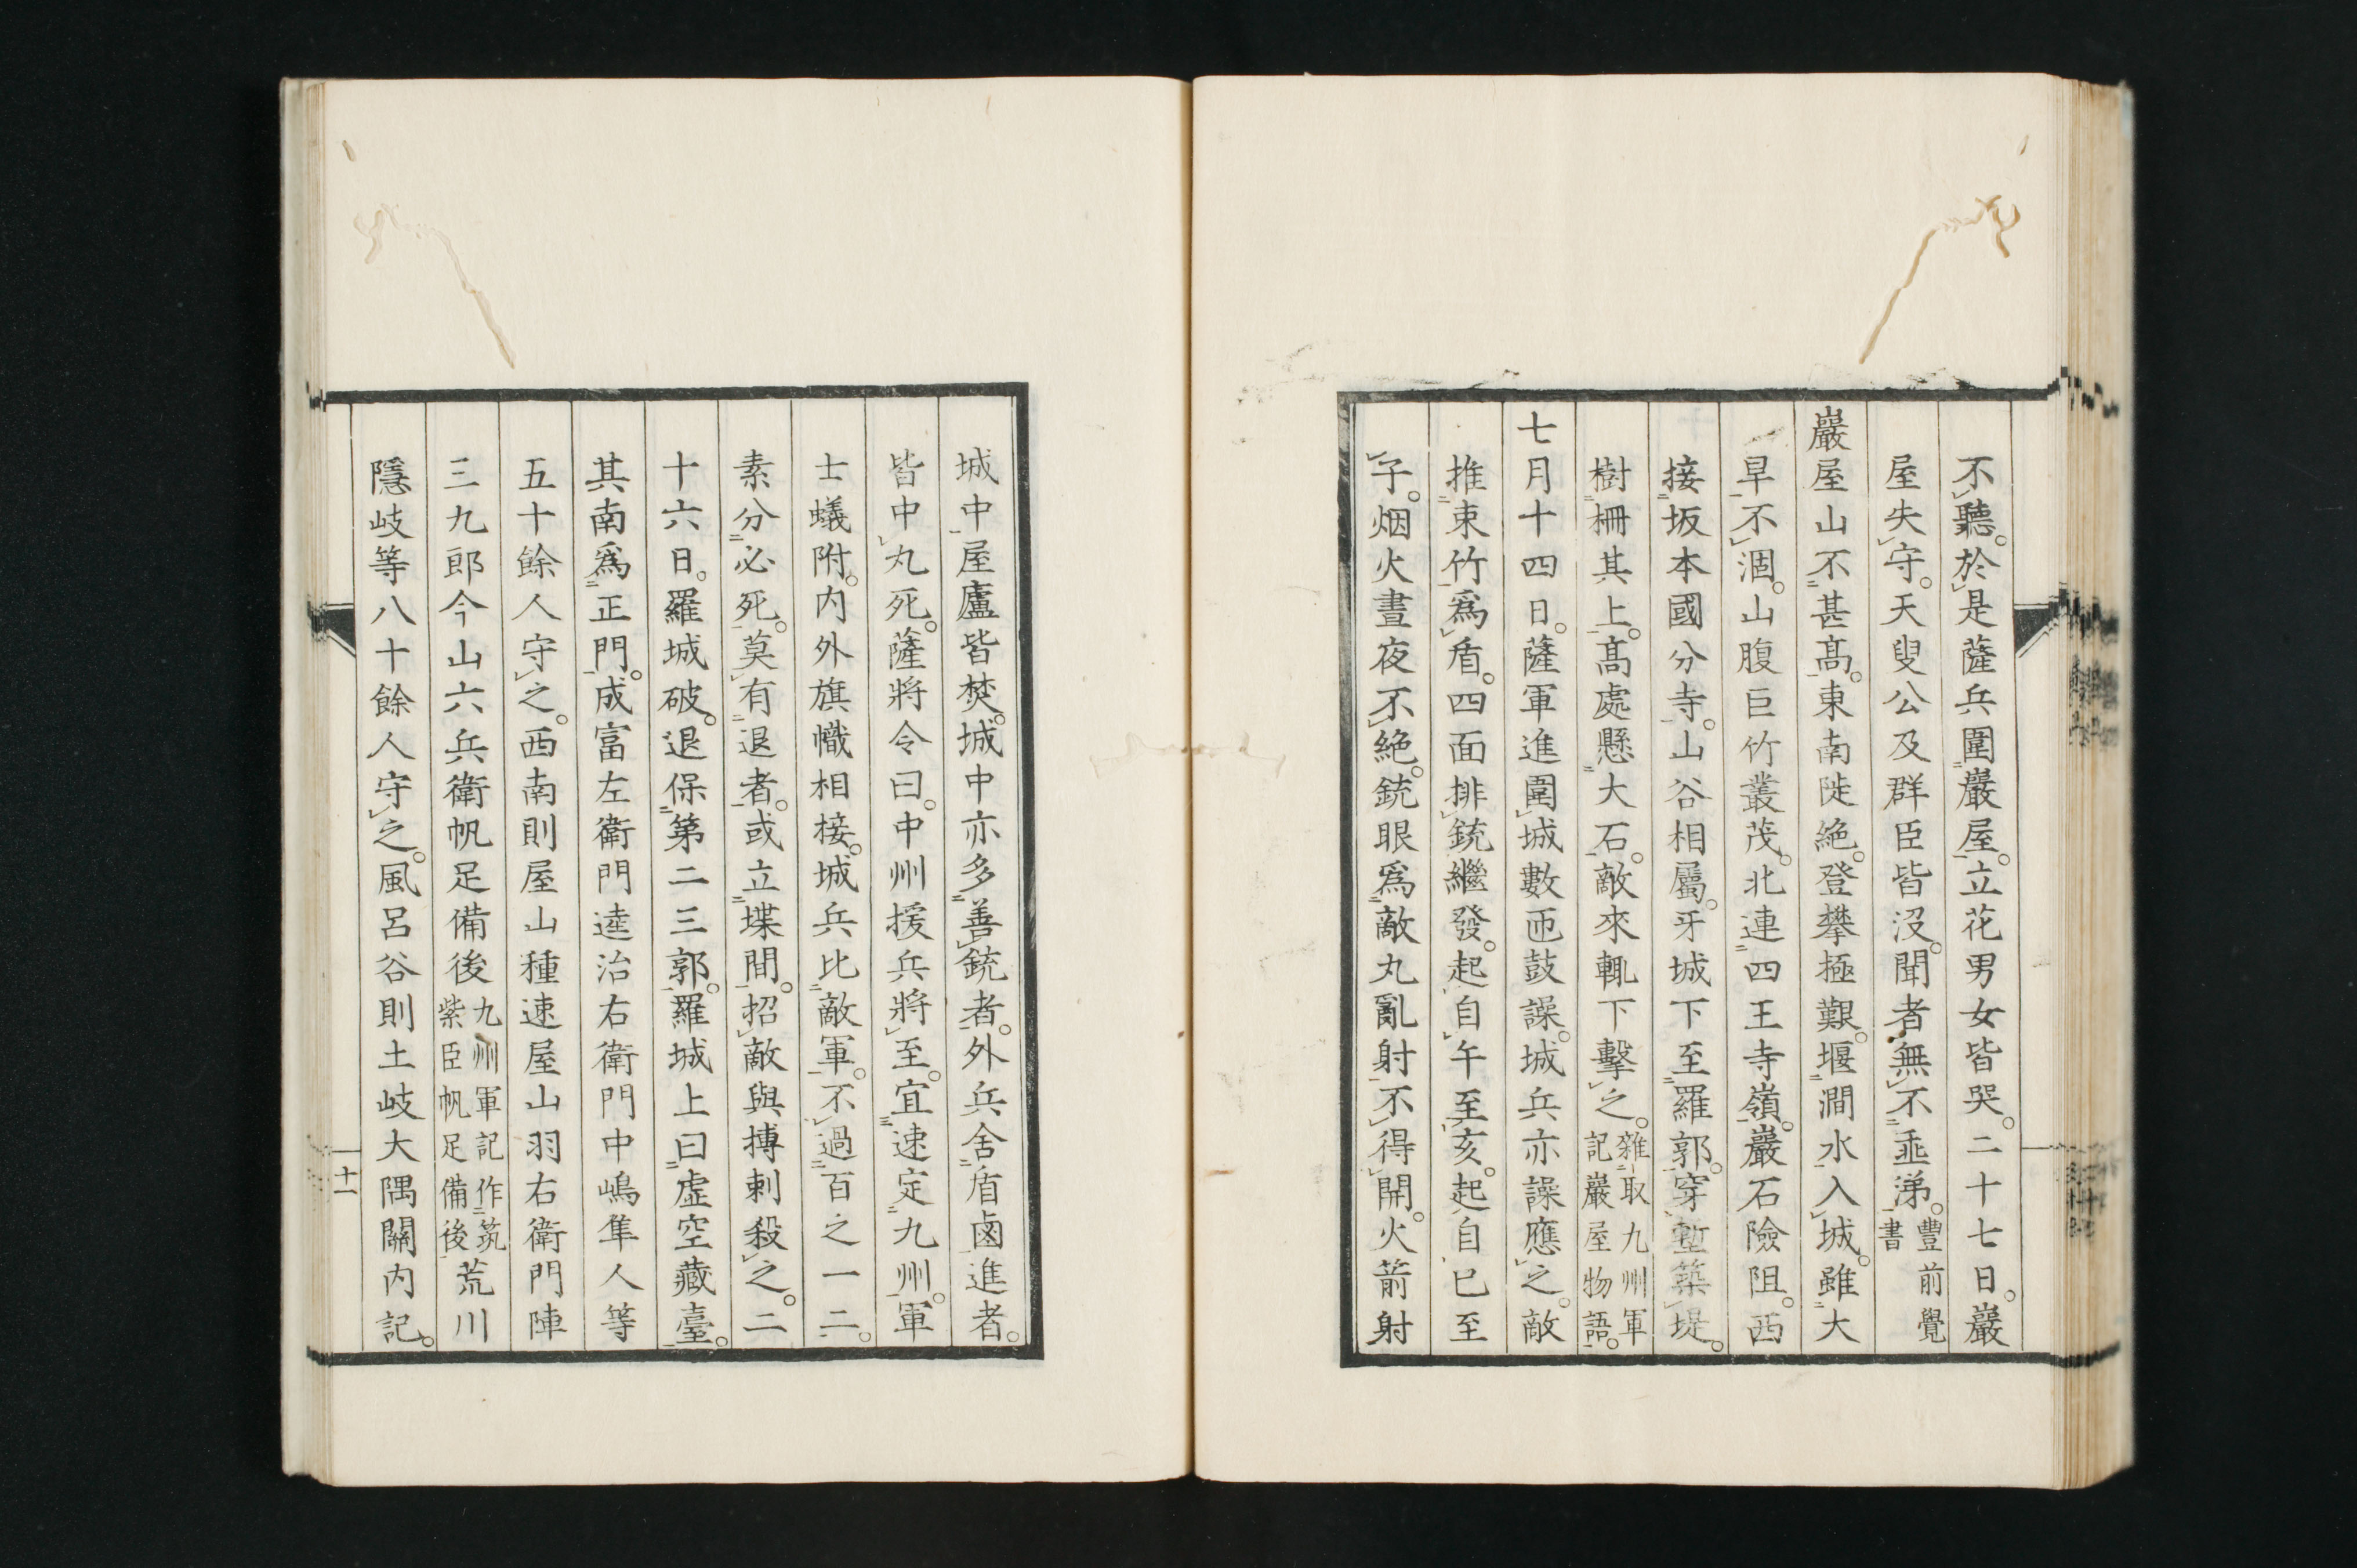 不聽。於是薩兵圍巖屋。立花男女皆哭。二十七日。巖
屋失守。天叟公及群臣皆沒。聞者無不垂涕。豐前覺書
巖屋山不甚髙。東南陡絶。登攀極艱。堰澗水入城。雖大
旱不涸。山腹巨竹叢茂。北連四王寺嶺。巖石險阻。西
接坂本國分寺。山谷相屬。牙城下至羅郭。穿塹築堤。
樹柵其上。髙處懸大石。敵來輒下擊之。雜取九州軍記巖屋物語。
七月十四日。薩軍進圍城數匝鼓譟。城兵亦譟應之。敵
推束竹爲盾。四面排銃繼發。起自午至亥。起自巳至
子。烟火晝夜不絶。銃眼爲敵丸亂射不得開。火箭射
城中屋廬皆焚。城中亦多善銃者。外兵舍盾鹵進者。
皆中丸死。薩將令曰。中州援兵將至。宜速定九州。軍
士蟻附。内外旗幟相接。城兵比敵軍。不過百之一二。
素分必死。莫有退者。或立堞間。招敵與搏刺殺之。二
十六日。羅城破。退保第二三郭。羅城上曰虛空藏臺。
其南爲正門。成富左衛門逵治右衛門中嶋隼人等
五十餘人守之。西南則屋山種速屋山羽右衛門陣
三九郎今山六兵衛帆足備後九州軍記作筑紫臣帆足備後荒川
隱岐等八十餘人守之。風呂谷則土岐大隅關内記。
十一